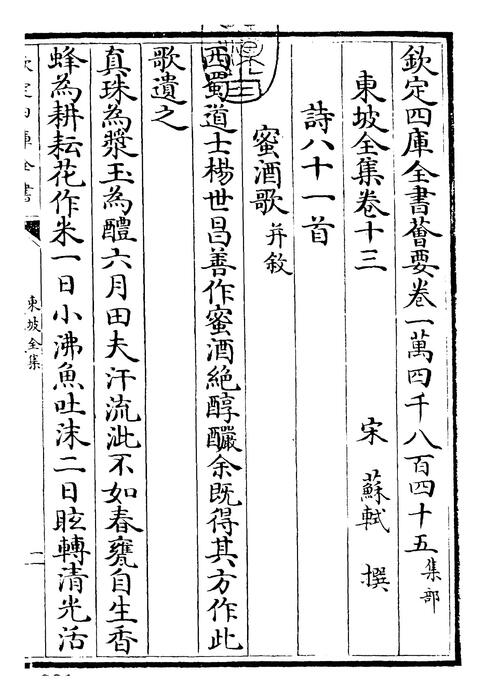 欽定四庫全書薈要卷一萬四千八百四十五集部
東坡全集卷十三
宋 蘇軾 撰
詩八十一首
蜜酒歌并敘
西蜀道士楊世昌善作蜜酒絶醇釅余既得其方作此
歌遺之
真珠為漿玉為醴六月田夫汗流泚不如春甕自生香
蜂為耕耘花作米一日小沸魚吐沫二日眩轉清光活
東坡全集